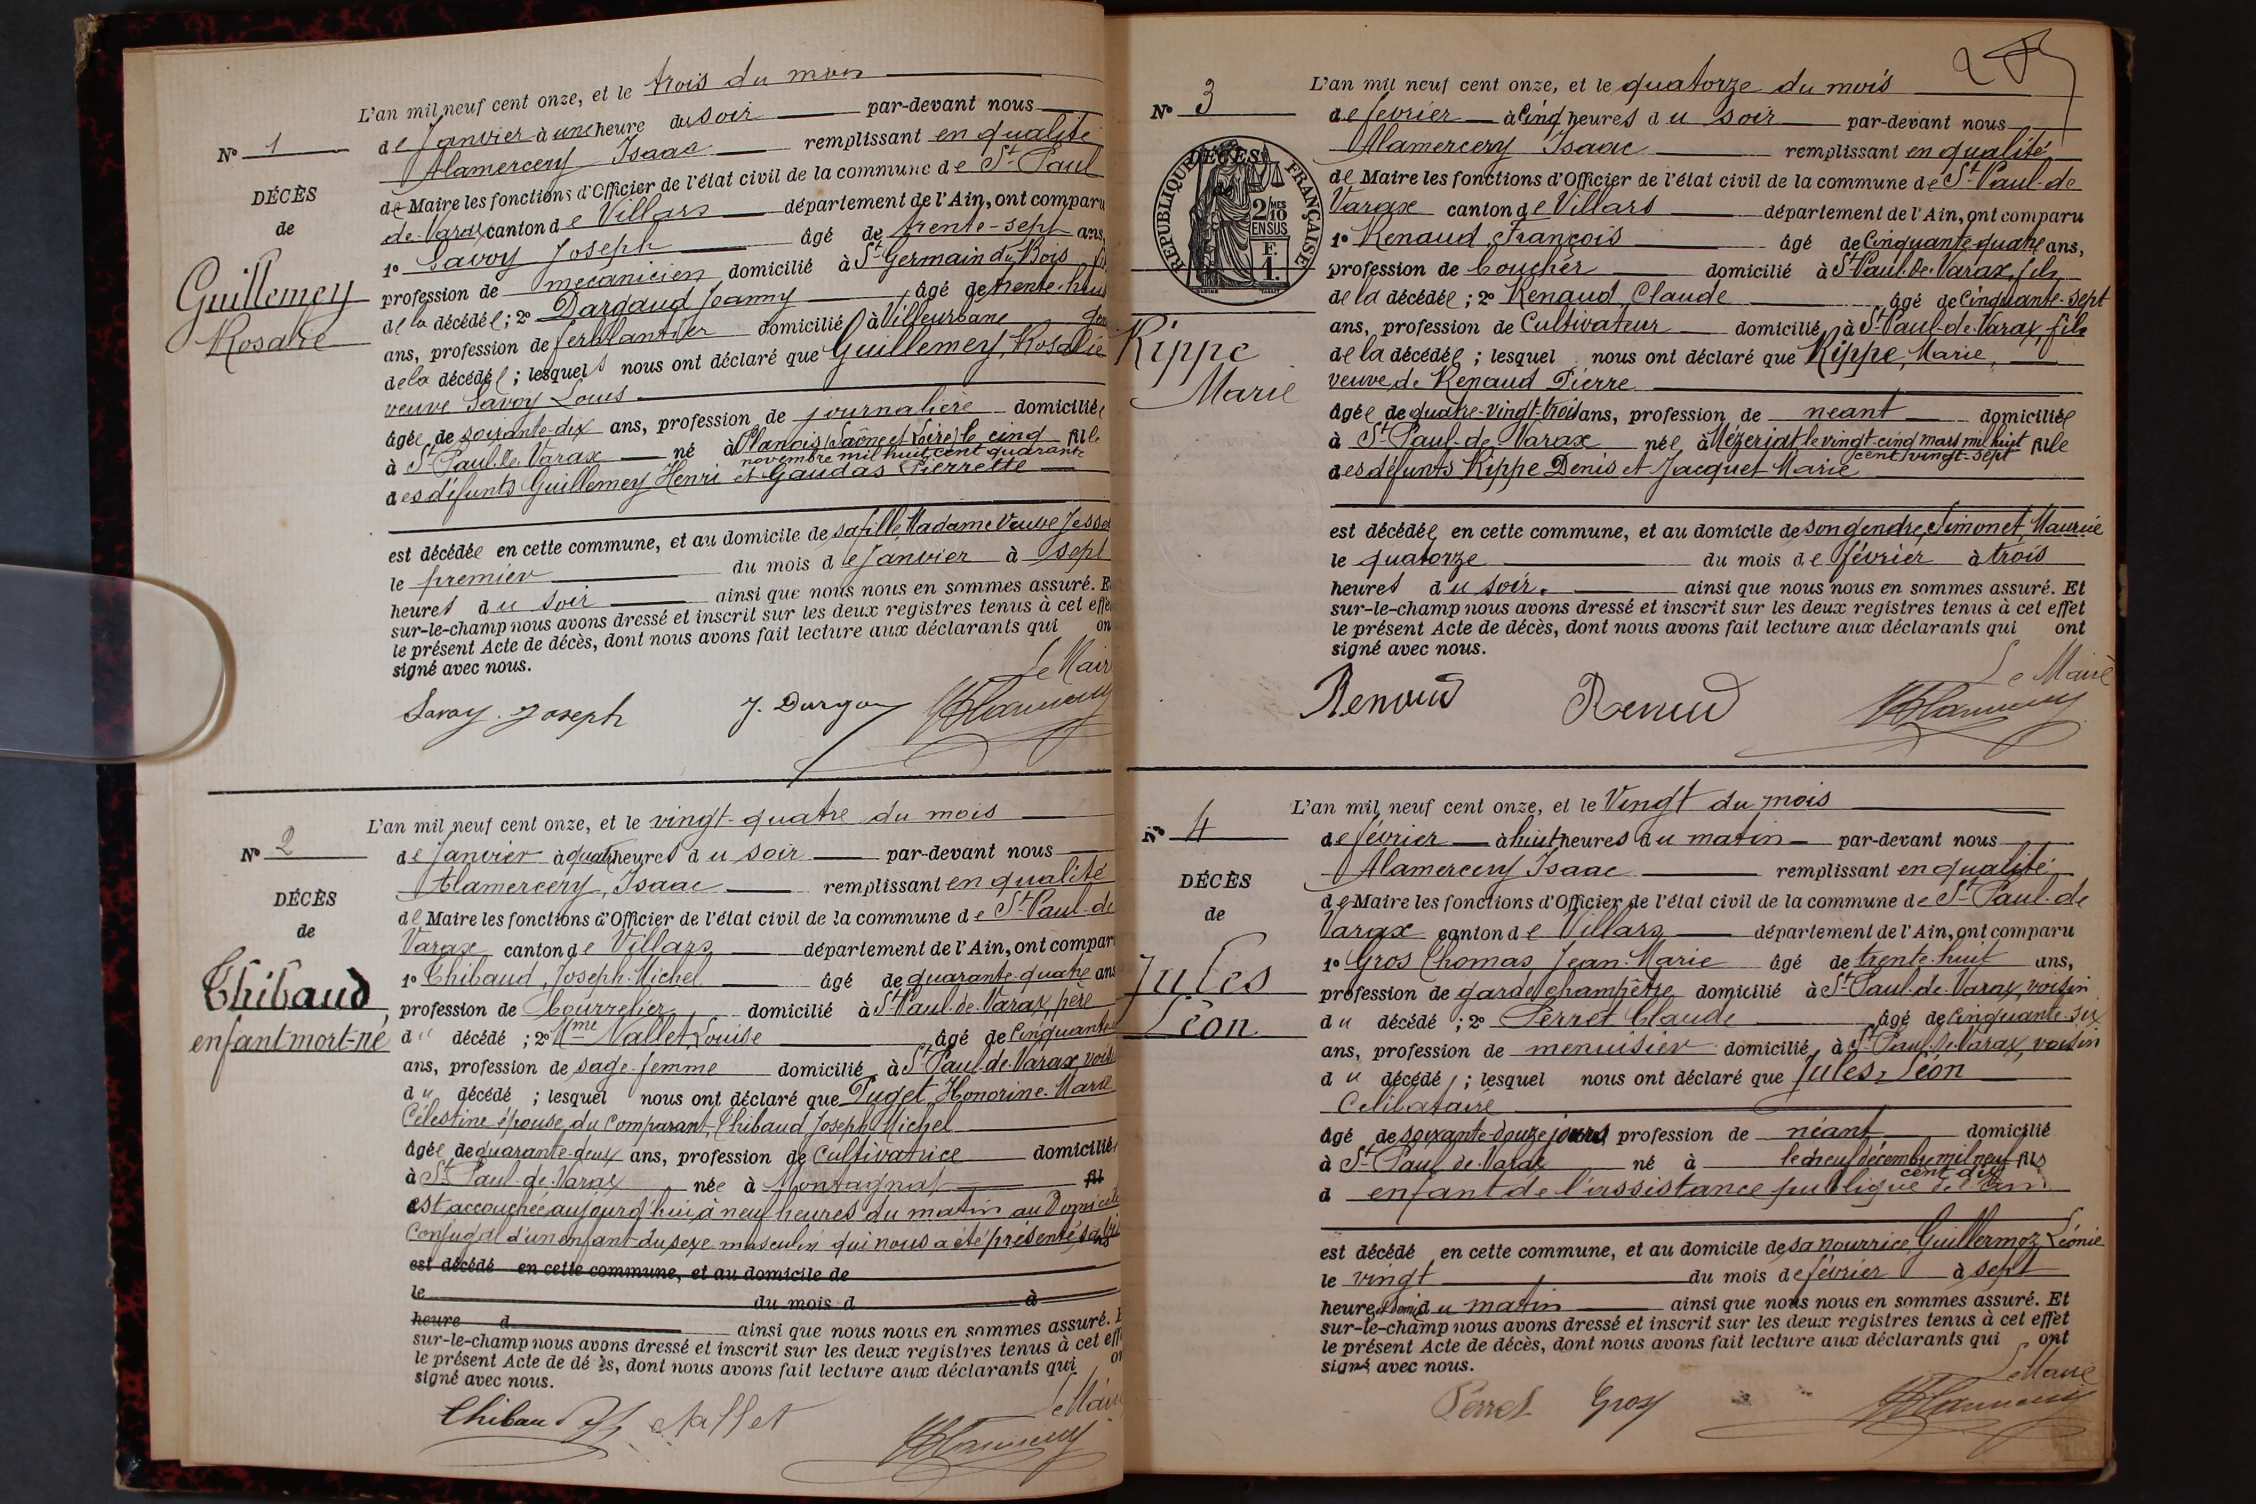 L'an mil neuf cent onze, et le trois du mois
N° 1
de Janvier à une heure du soir par-devant nous
Alamercery Isaac remplissant en qualité
de Maire les fonctions d'Officier de l'état civil de la commune de St Paul
de Varax canton de Villars département de l'Ain, ont comparu
DÉCÈS
de
Guillemey
Rosalie
1° Savoy Joseph âgé de trente-sept ans,
profession de mécanicien domicilié à St Germain du Bois
de la décédée ; 2° Dargaud Jeanny âgé de trente-huit
ans, profession de ferblantier domicilié à Villeurbane
de la décédée ; lesquels nous ont déclaré que Guillemey, Rosalie
veuve Savoy Louis
âgée de soixante-dix ans, profession de journalière domiciliée
à St Paul de Varax né à Planois (Saône et Loire) le cinq fille
novembre mil huit cent quarante
des défunts Guillemey Henri et Gaudas Pierrette
est décédée en cette commune, et au domicile de sa fille, Madame Veuve
le premier du mois de Janvier à sept
heures du soir ainsi que nous nous en sommes assuré. Et
sur-le-champ nous avons dressé et inscrit sur les deux registres tenus à cet effet
le présent Acte de décès, dont nous avons fait lecture aux déclarants qui on
signé avec nous.
Le Mair
Savoy Joseph J. Durgau
L'an mil neuf cent onze, et le vingt-quatre du mois
N° 2
de Janvier à quatre heures du soir par-devant nous
Alamercery, Isaac remplissant en qualité
de Maire les fonctions d'Officier de l'état civil de la commune de St Paul-de
Varax canton de Villars département de l'Ain, ont compar
DÉCÈS
de
Thibaud
enfant mort-né
1° Thibaud, Joseph-Michel âgé de quarante-quatre ans
profession de Bourrelier domicilié à St Paul-de-Varax, père
du décédé ; 2° Mme Vallet, Louise âgé de Cinquante
ans, profession de sage-femme domicilié à St Paul-de-Varax, vois
du décédé ; lesquel nous ont déclaré que Puget, Honorine-Marie
Célestine épouse du Comparant, Thibaud Joseph Michel
âgée de quarante-deux ans, profession de Cultivatrice domiciliée
à St Paul-de-Varax née à Montagnat fil
est accouchée aujourd'hui à neuf heures du matin au Domicile
Conjugal d'un enfant du sexe masculin qui nous a été présenté sans
est décédé en cette commune, et au domicile de
le du mois d à
heure d ainsi que nous nous en sommes assuré. E
sur-le-champ nous avons dressé et inscrit sur les deux registres tenus à cet eff
le présent Acte de dé ès, dont nous avons fait lecture aux déclarants qui on
signé avec nous.
Le Mair
Thibaud Vallet
L'an mil neuf cent onze, et le quatorze du mois
N° 3
de février à Cinq heures du soir par-devant nous
Alamercery Isaac remplissant en qualité
de Maire les fonctions d'Officier de l'état civil de la commune de St Paul-de
Varax canton de Villars département de l'Ain, ont comparu
DÉCÈS
de
RÉPUBLIQUE FRANÇAISE
2 MES
10
EN SUS
F.
1.
Rippe
Marie
1° Renaud, François âgé de Cinquante-quatre ans,
profession de Boucher domicilié à St Paul-de-Varax, fils
de la décédée ; 2° Renaud, Claude âgé de Cinquante-sept
ans, profession de Cultivateur domicilié à St Paul-de-Varax, fils
de la décédée ; lesquel nous ont déclaré que Rippe, Marie,
veuve de Renaud Pierre
âgée de quatre-vingt-trois ans, profession de néant domiciliée
à St Paul-de-Varax née à Mézeriat le vingt-cinq mars mil huit fille
cent vingt-sept
des défunts Rippe Denis et Jacquet Marie
est décédée en cette commune, et au domicile de son gendre, Simonet, Maurice
le quatorze du mois de février à trois
heures du soir. ainsi que nous nous en sommes assuré. Et
sur-le-champ nous avons dressé et inscrit sur les deux registres tenus à cet effet
le présent Acte de décès, dont nous avons fait lecture aux déclarants qui ont
signé avec nous.
Le Maire
Renaud Renaud
L'an mil neuf cent onze, et le Vingt du mois
N° 4
de février à huit heures du matin par-devant nous
Alamercery Isaac remplissant en qualité
de Maire les fonctions d'Officier de l'état civil de la commune de St Paul-de
Varax canton de Villars département de l'Ain, ont comparu
DÉCÈS
de
Jules
Léon
1° Gros Thomas, Jean-Marie âgé de trente-huit ans,
profession de garde champêtre domicilié à St Paul-de-Varax, voisin
du décédé ; 2° Perret Claude âgé de Cinquante-six
ans, profession de menuisier domicilié à St Paul-de-Varax, voisin
du décédé ; lesquel nous ont déclaré que Jules, Léon
Célibataire
âgé de soixante-douze jours profession de néant domicilié
à St Paul de Varax né à le neuf décembre mil neuf fils
cent dix
d enfant de l'assistance publique de l'Ain
est décédé en cette commune, et au domicile de sa nourrice, Guillermoz Léonie
le vingt du mois de février à sept
heure et demie du matin ainsi que nous nous en sommes assuré. Et
sur-le-champ nous avons dressé et inscrit sur les deux registres tenus à cet effet
le présent Acte de décès, dont nous avons fait lecture aux déclarants qui ont
signé avec nous.
Le Maire
Perret Gros